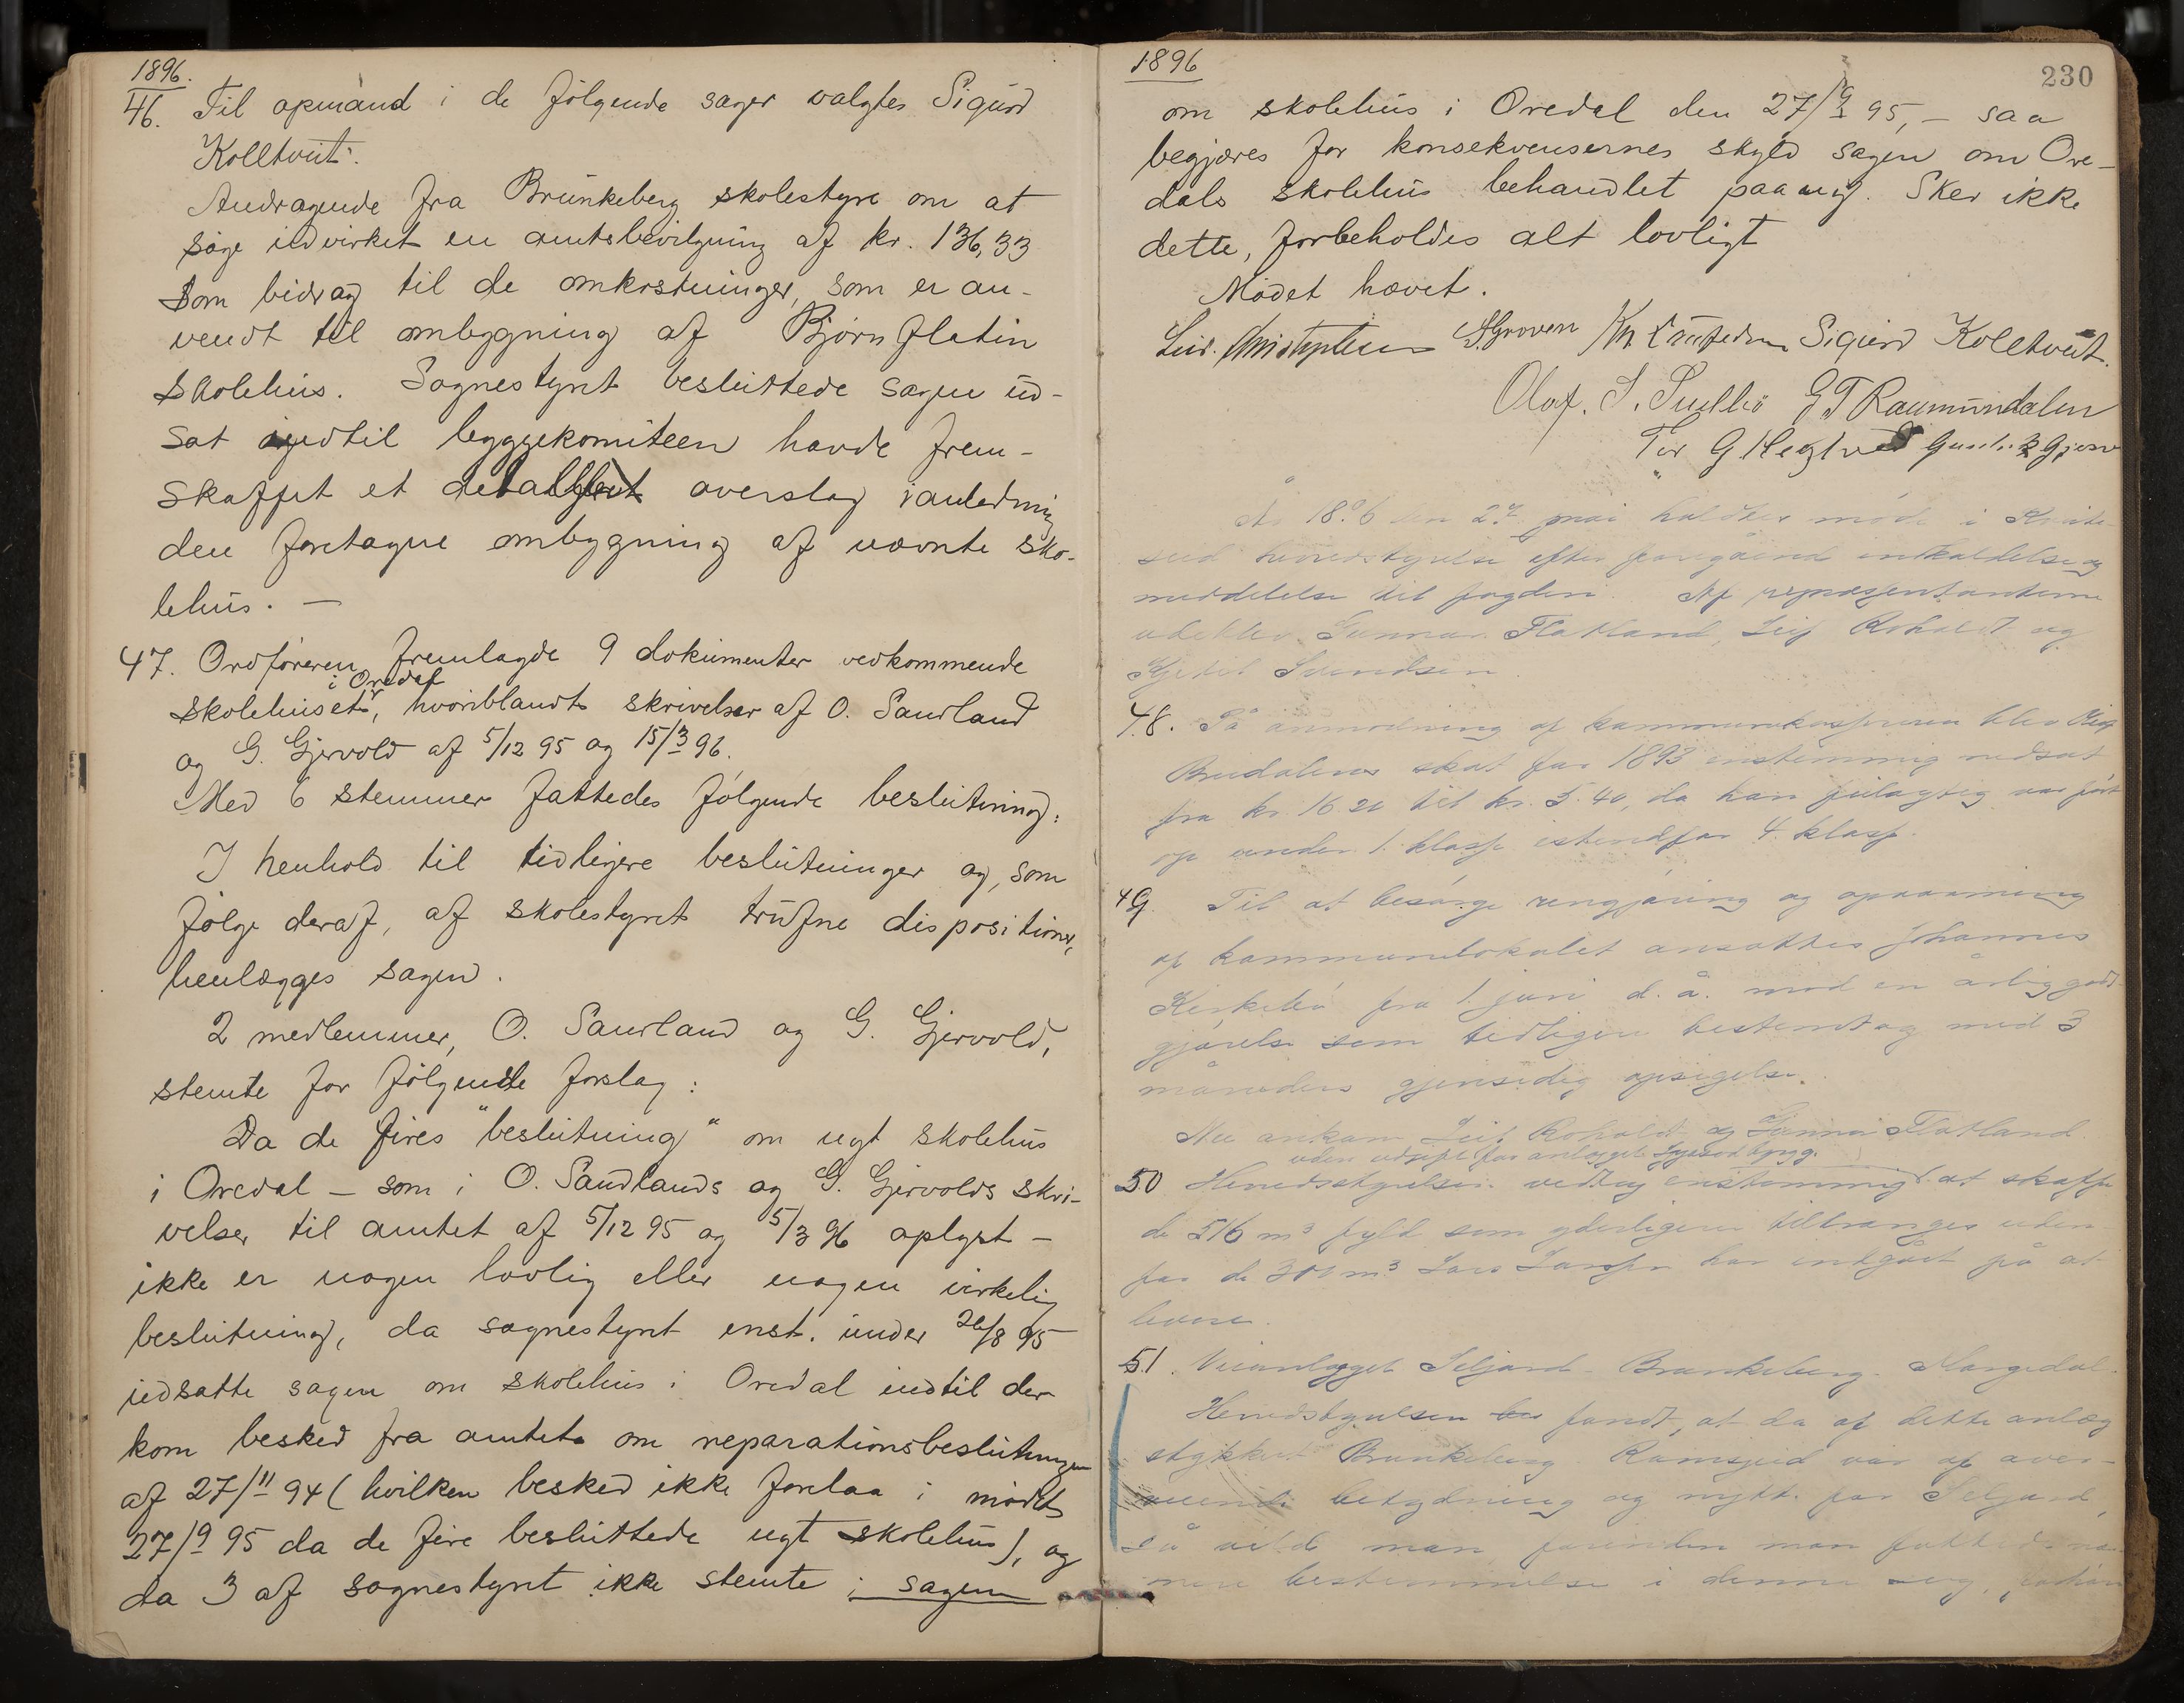 1896.
46. Til opmand i de følgende sager valgtes Sigurd
Kolltveit.
Andragende fra Brunkeberg skolestyre om at
søge udvirket en amtsbevilgning af kr. 136,33
som bidrag til de omkostninger, som er an-
vendt til ombygning af Bjørnflatin
skolehus. Sognestyret besluttede sagen ud-
sat indtil byggekomiteen havde frem-
skaffet et detalgeret overslag i anledning
den foretagne ombygning af nævnte sko-
lehus. —
47. Ordføreren fremlagde 9 dokumenter vedkommende
i Oredal
skolehuset, hvoriblandt skrivelser af O. Sandland
og G. Gjervold af 5/12 95 og 15/3 96.
Med 6 stemmer fattedes følgende beslutning:
I henhold til tidligere beslutninger og, som
følge deraf, af skolestyret trufne dispositioner,
henlægges sagen.
2 medlemmer, O. Sandland og G. Gjervold,
stemte for følgende forslag:
Da de fires "beslutning" om nyt skolehus
i Oredal – som i O. Sandlands og G. Gjervolds skri-
velser til amtet af 5/12 95 og 5/3 96 oplyst –
ikke er nogen lovlig eller nogen virkelig
beslutning, da sognestyret enst. under 26/8 95
udsatte sagen om skolehus i Oredal indtil der
kom besked fra amtet om reparationsbeslutningen
af 27/11 94 (hvilken besked ikke forelaa i mødet
27/9 95 da de fire besluttede nyt skolehus), og
da 3 af sognestyret ikke stemte i sagen
1896
230
om skolehus i Oredal den 27/9 95, – saa
begjæres for konsekvensernes skyld sagen om Ore-
dals skolehus behandlet paa ny. Sker ikke
dette, forbeholdes alt lovligt
Mødet hævet.
Groven Sigurd Kolltveit.
Olaf. S. G T Raumundalen
Tor G Hegtveit
År 1896 den 27 mai holdtes møde i Kvite-
seid herredsstyrelse efter foregående indkaldelse og
meddelelse til fogden. Af repræsentanterne
udeblev Gunnar Flatland, Leif Roholdt og
Kjetil Svendsen
48. På anmodning af kommunekassereren blev
skat for 1893 enstemmig nedsat
fra kr. 16 20 til kr. 5.40, da han var ført
op under 1. klasse istedetfor 4. klasse.
49. Til at besørge rengjøring og opvarming
af kommunelokalet ansattes Johannes
Kirkebø fra 1. juni d. å. mod en årlig godt-
gjørelse som tidligere bestemt og med 3
måneders gjensidig opsigelse.
Nu ankom Leif Roholdt og Gunnar Flatland.
uden udgift for anlægget
50 Herredsstyrelsen vedtog enstemmig at skaffe
de 516 m³ fyld som yderligere tiltrænges uden
for de 300 m³ Lars Larsen har indgået på at
levere.
51. Veianlægget Seljord – Brunkeberg – Morgedal.
Herredsstyrelsen fandt, at da af dette anlæg
stykket Brunkeberg – Ramsjeid var af over-
veiende betydning og nytte for Seljord,
så vilde man, forinden man fattede
bestemmelse i denne sag,